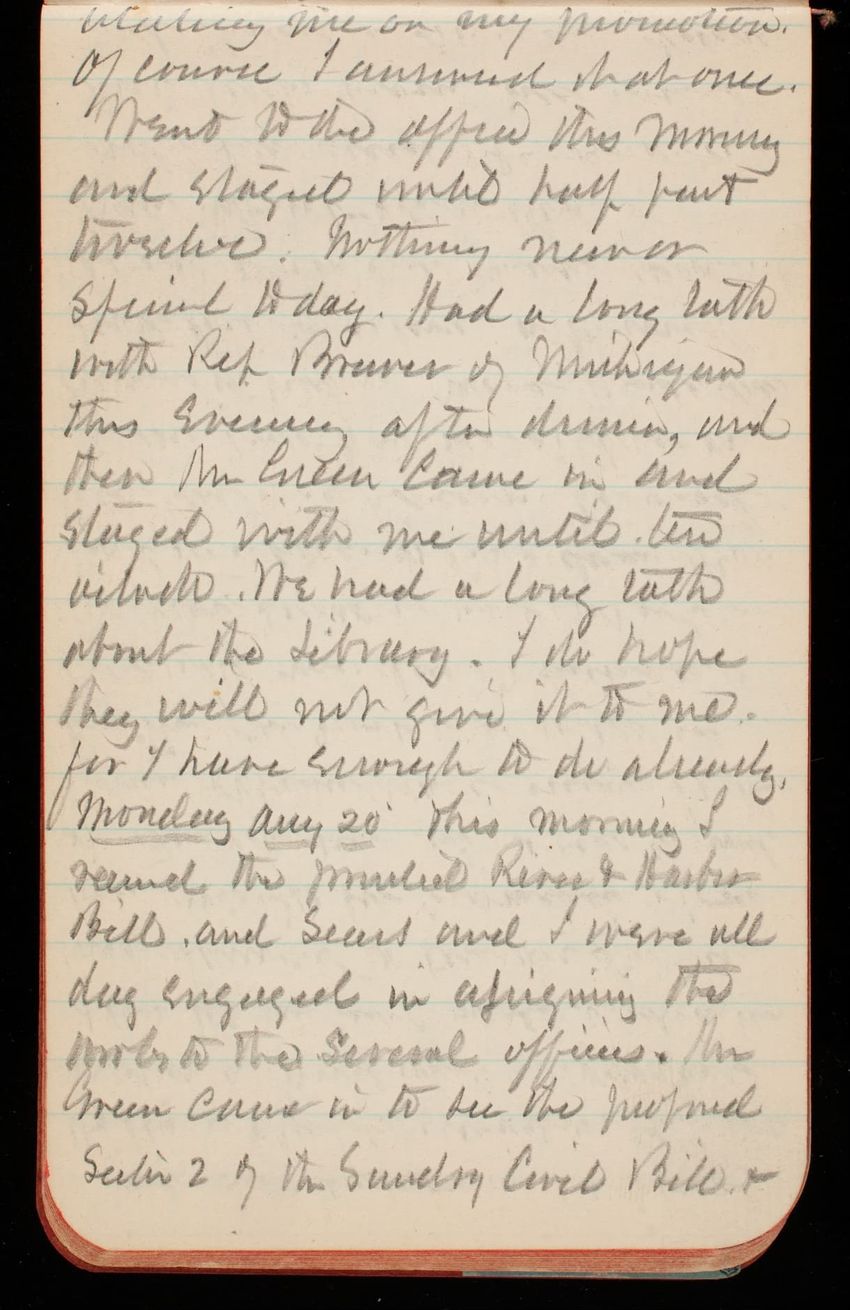 ulating me on my promotion.
Of course I answered it at once.
Went to the office this morning
and stayed until half past
twelve. Nothing new or
special today. Had a long talk
with Rep Brewer of Michigan
this evening after dinner, and
then Mr Green came in and
stayed with me until ten
oclock. We had a long talk
about the Library. I do hope
they will not give it to me.
for I have enough to do already.
Monday Aug 20 This morning I
received the printed River & Harbor
Bill. and Sears and I were all
day engaged in assigning the
works to the several officers. Mr
Green came in to see the proposed
Section 2 of the Sundry Civil Bill. &